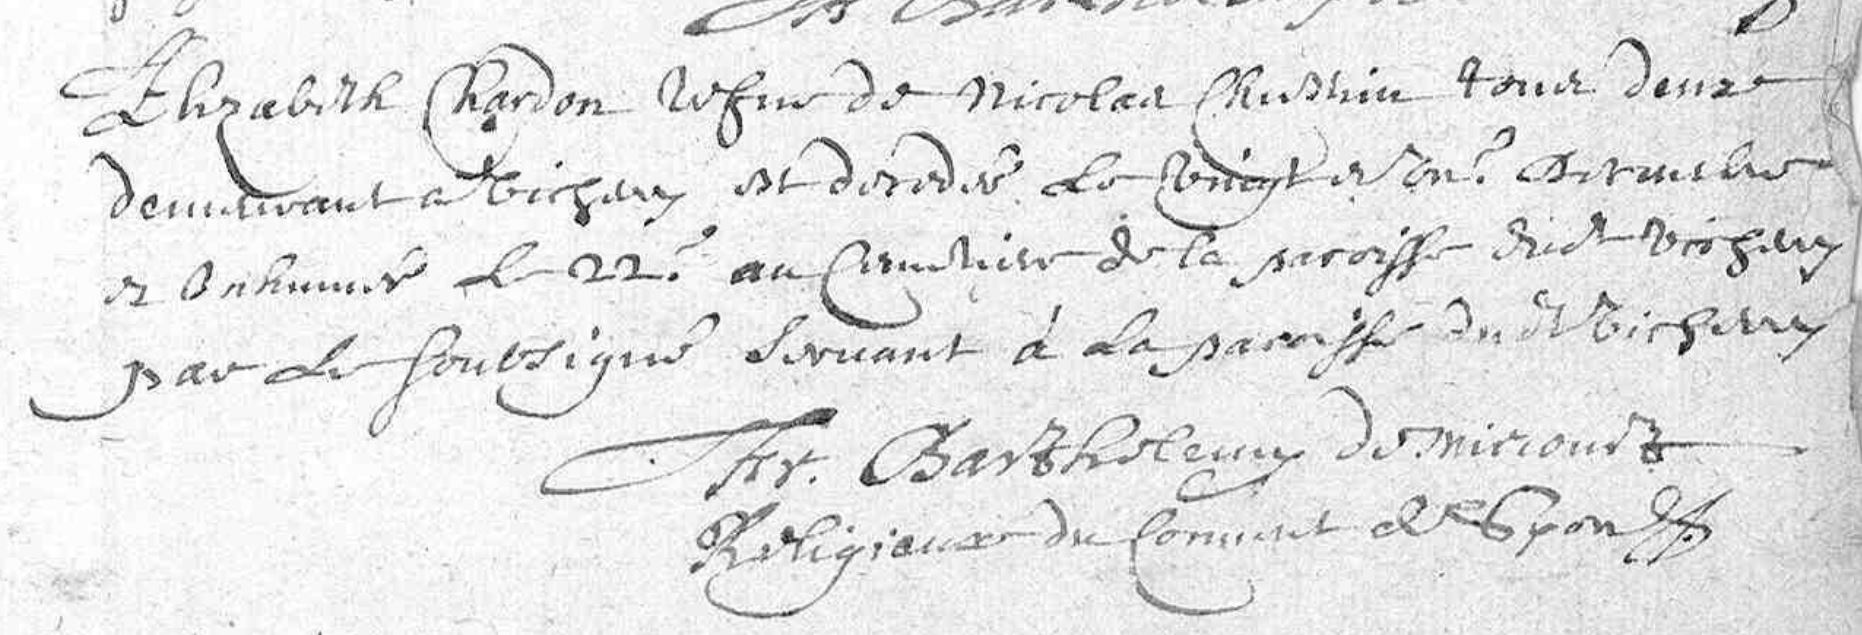 Elizabeth Chardon vefue de Nicolas Chrestien tous deux
demeurant a Vichery est decedée le vingt et un.e
et Inhumée le 22.e au Cimetiere de la paroisse dudt Vichery
par le soubsigné servant à la paroisse dudt Vichery
Fr. Barthelemy de Mirecourt
Religieux du Convent de